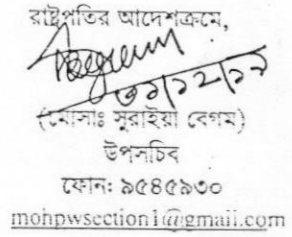 রাষ্ট্রপতির আদেশক্রমে,
৩১/১২/১৯
(মোসাঃ সুরাইয়া বেগম)
উপসচিব
ফোন: ৯৫৪৫৯৩০
mohpwsection1@gmail.com